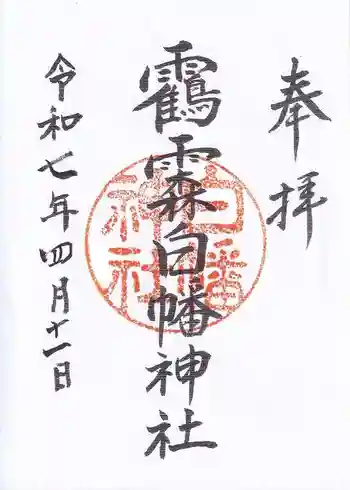 奉拝
靏霖白幡神社
白幡神社
令和七年四月十一日